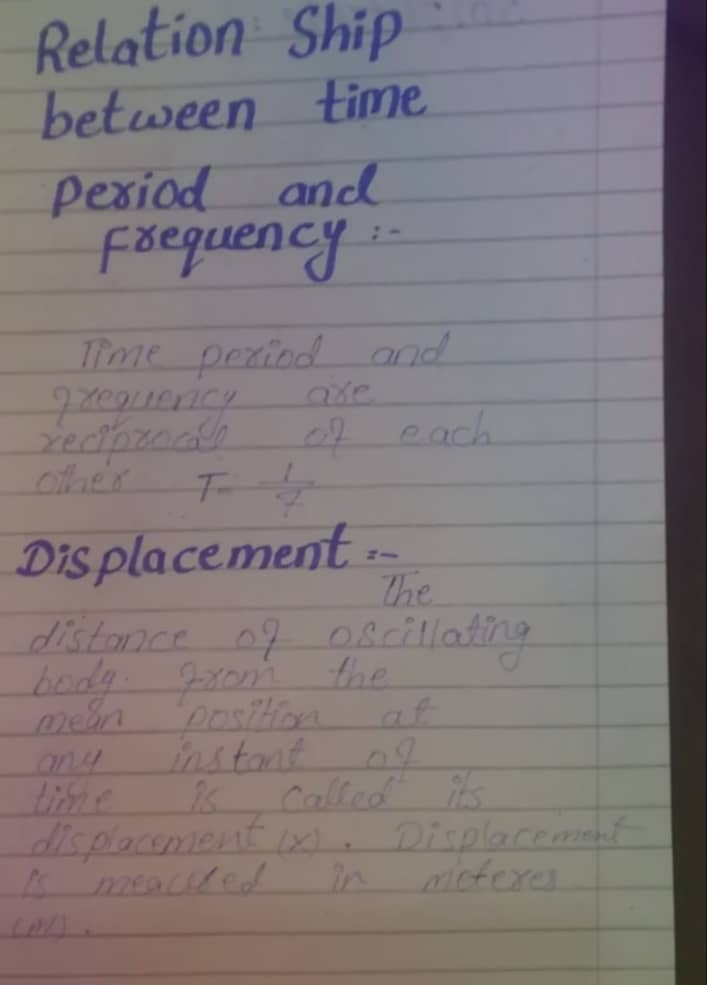 Relation Ship
between time
period and
Frequency :-
Time period and
frequency are
reciprocals of each
other T= 1/f
Displacement :-
The
distance of oscillating
body. from the
mean position at
any instant of
time is called its
displacement (x). Displacement
is measured in meteres
(M).